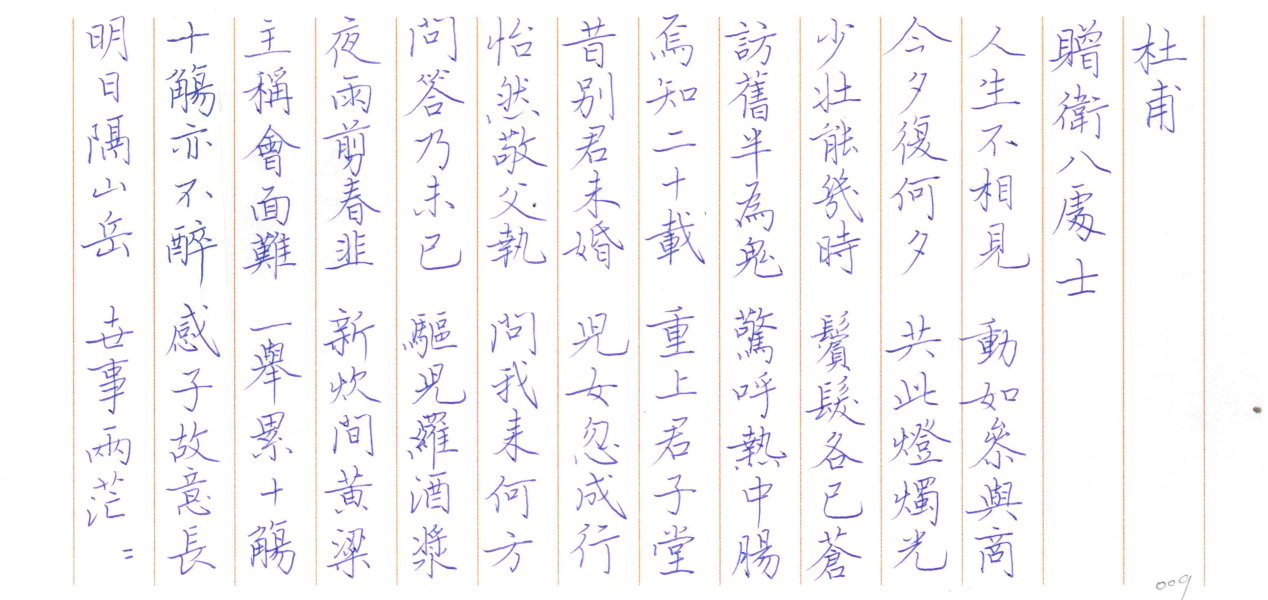 杜甫
贈衛八處士
人生不相見 動如參與商
今夕復何夕 共此燈燭光
少壯能幾時 鬢髮各已蒼
訪舊半為鬼 驚呼熱中腸
焉知二十載 重上君子堂
昔別君未婚 兒女忽成行
怡然敬父執 問我來何方
問答乃未已 驅兒羅酒漿
夜雨剪春韭 新炊間黃粱
主稱會面難 一舉累十觴
十觴亦不醉 感子故意長
明日隔山岳 世事兩茫〻
009